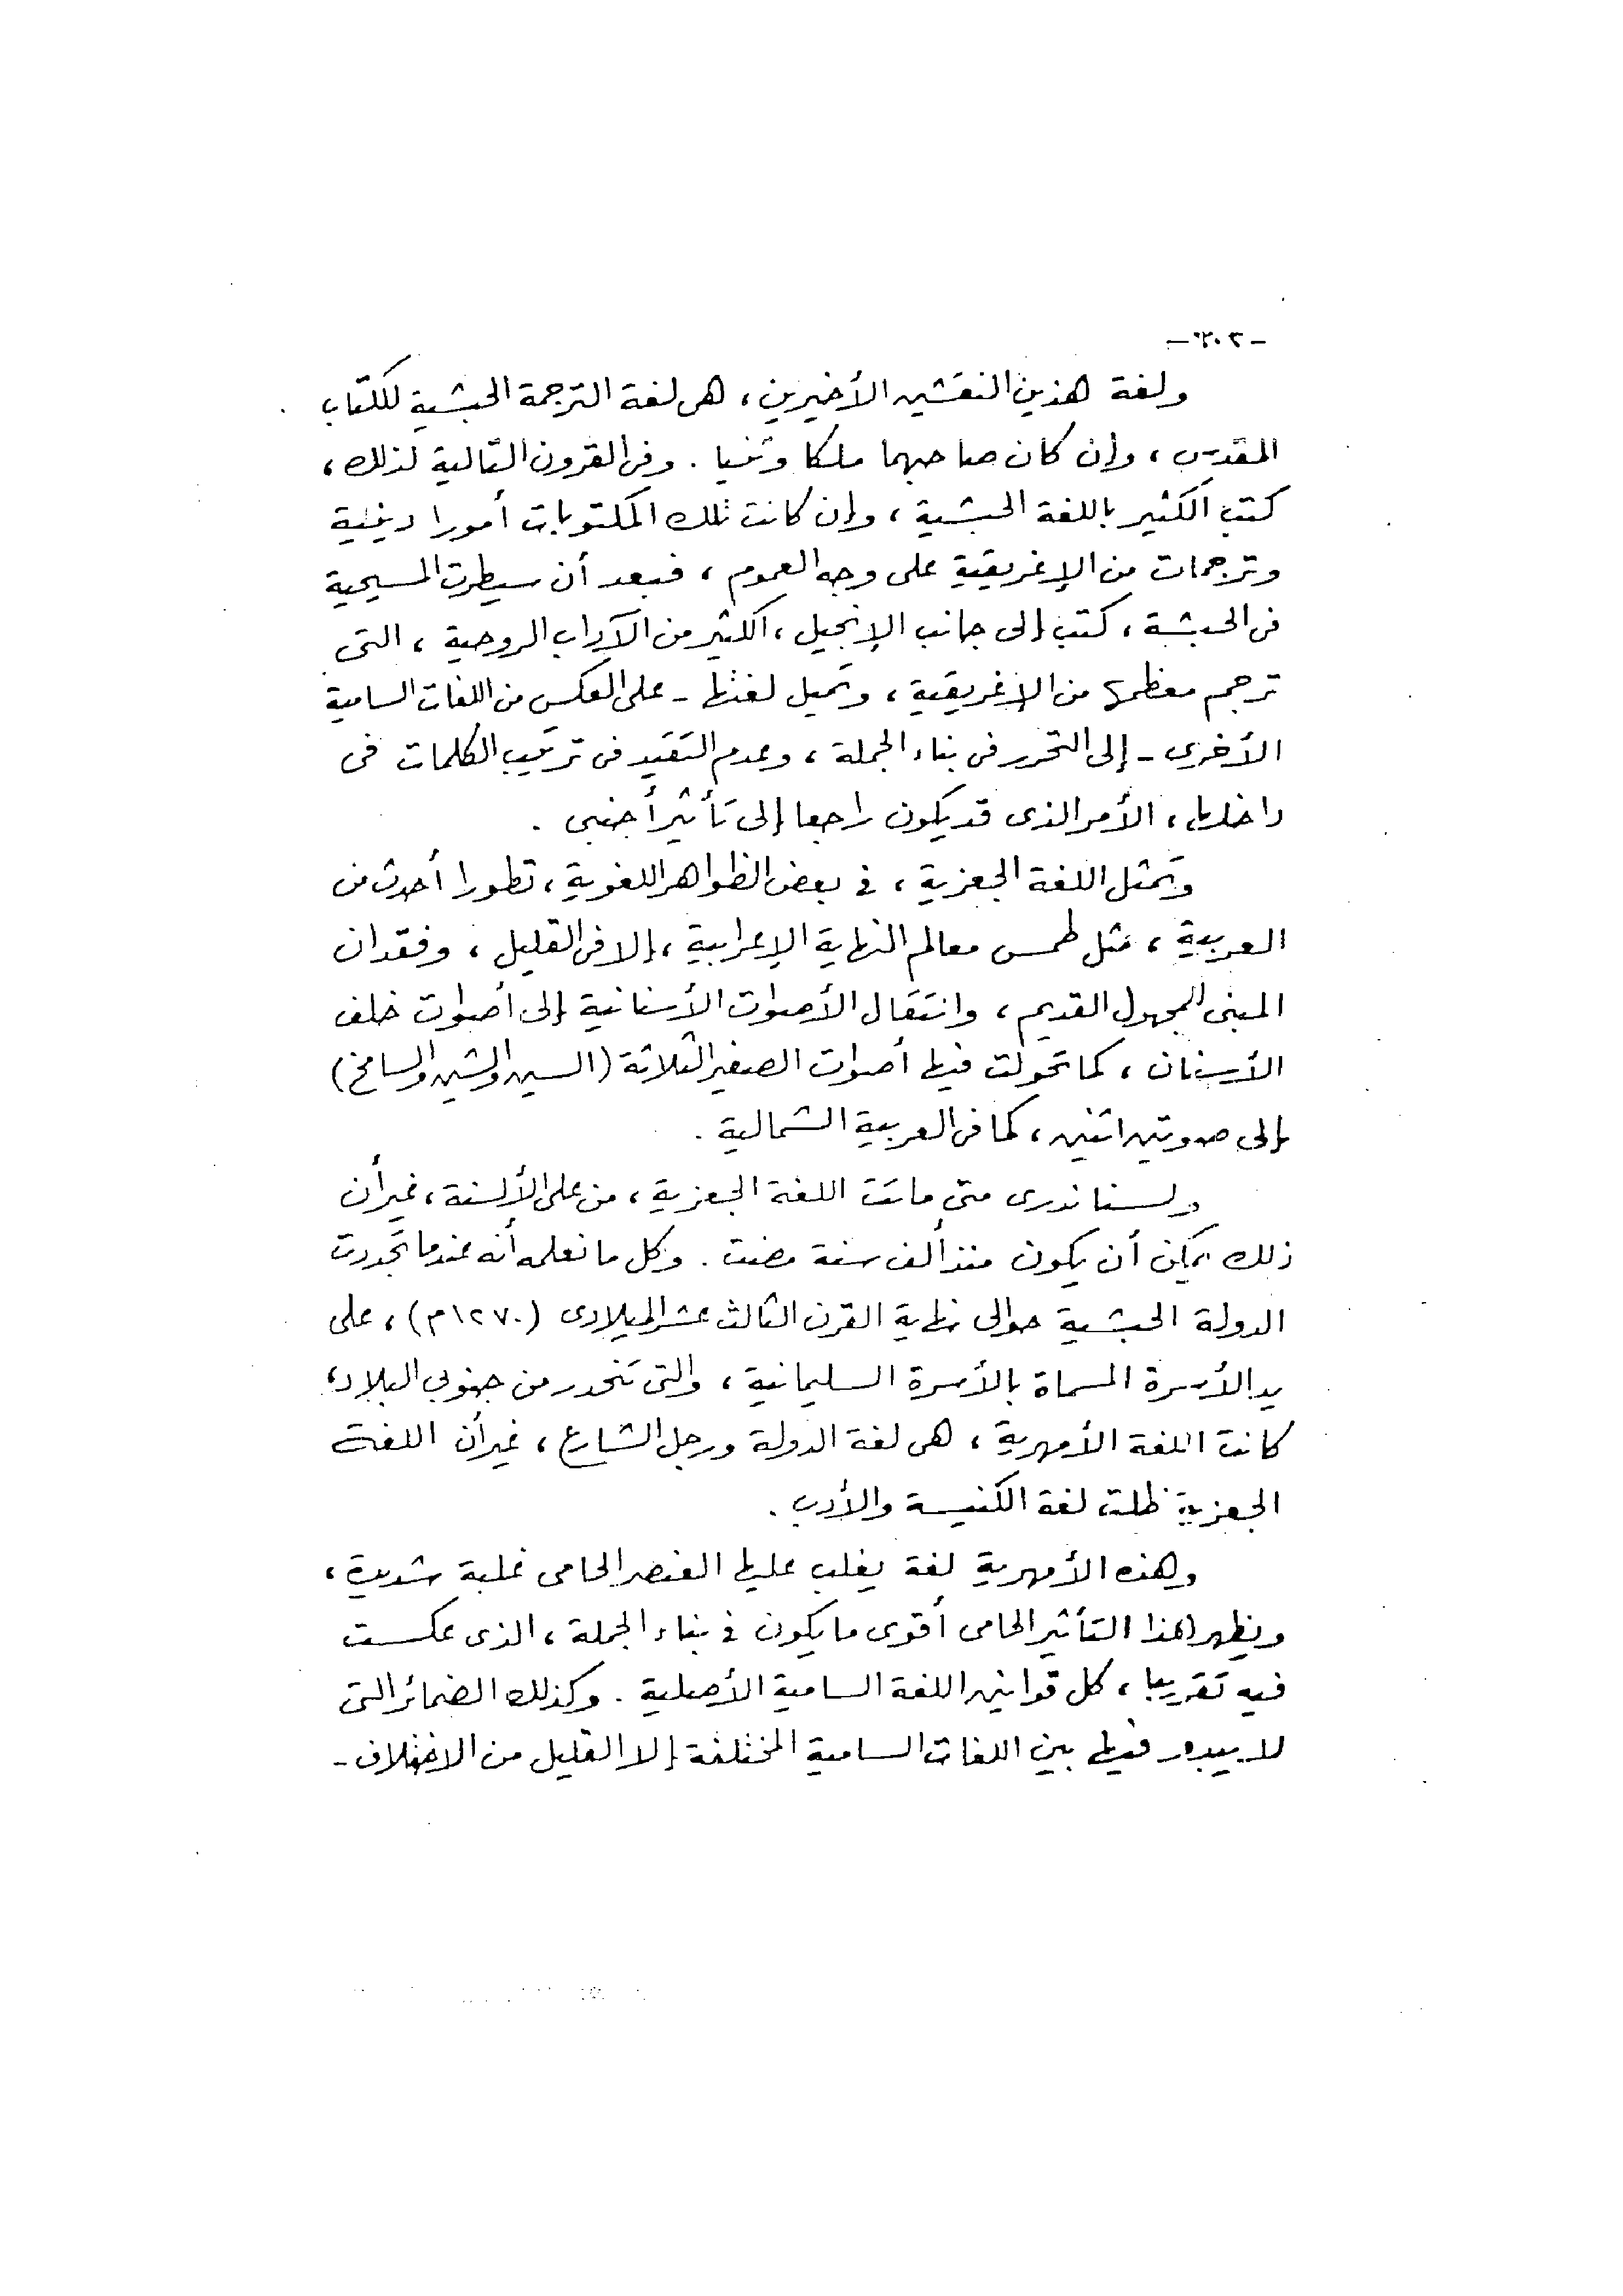 - ٢٠٣ -
ولغة هذين النقشين الأخيرين ، هى لغة الترجمة الحبشية للكتاب
المقدس ، وإن كان صاحبهما ملكا وثنيا . وفى القرون التالية لذلك ،
كتب الكثير باللغة الحبشية ، وإن كانت تلك المكتوبات أمورا دينية
وترجمات من الإغريقية على وجه العموم ، فبعد أن سيطرت المسيحية
فى الحبشة ، كتب إلى جانب الإنجيل ، الكثير من الآداب الروحية ، التى
ترجم معظمها من الإغريقية ، وتميل لغتها - على العكس من اللغات السامية
الأخرى - إلى التحرر فى بناء الجملة ، وعدم التقيد فى ترتيب الكلمات فى
داخلها ، الأمر الذى قد يكون راجعا إلى تأثير أجنبى .
وتمثل اللغة الجعزية ، فى بعض الظواهر اللغوية ، تطورا أحدث من
العربية ، مثل طمس معالم النهاية الإعرابية ، إلا فى القليل ، وفقدان
المبنى للمجهول القديم ، وانتقال الأصوات الأسنانية إلى أصوات خلف
الأسنان ، كما تحولت فيها أصوات الصفير الثلاثة (السين والشين والسامخ)
إلى صوتين اثنين ، كما فى العربية الشمالية .
ولسنا ندرى متى ماتت اللغة الجعزية ، من على الألسنة ، غير أن
ذلك يمكن أن يكون منذ ألف سنة مضت . وكل ما نعلمه أنه عندما تجددت
الدولة الحبشية حوالى نهاية القرن الثالث عشر الميلادى (١٢٧٠م) ، على
يد الأسرة المسماة بالأسرة السليمانية ، والتى تنحدر من جنوبى البلاد ،
كانت اللغة الأمهرية ، هى لغة الدولة ورجل الشارع ، غير أن اللغة
الجعزية ظلت لغة الكنيسة والأدب .
وهذه الأمهرية لغة يغلب عليها العنصر الحامى غلبة شديدة ،
ويظهر هذا التأثير الحامى أقوى ما يكون فى بناء الجملة ، الذى عكست
فيه تقريبا ، كل قوانين اللغة السامية الأصلية . وكذلك الضمائر التى
لا يبدو فيها بين اللغات السامية المختلفة إلا القليل من الاختلاف -